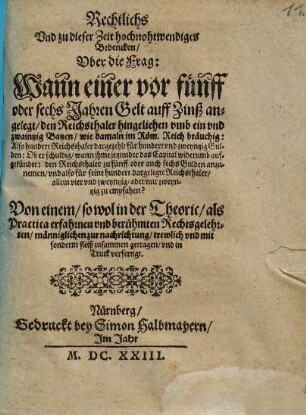 Rechtlichs
Vnd zu dieser Zeit hochnohtwendiges
Bedencken/
Vber die Frag:
Wann einer vor fünff
oder sechs Jahren Gelt auff Zinß an-
gelegt/ den Reichsthaler hingelichen vmb ein vnd
zwaintzig Batzen/ wie damaln im Röm. Reich bräuchig:
Also hundert Reichsthaler dargezehlt für hundert vnd zwentzig Gul-
den: Ob er schuldig/ wann ihme jetzunder das Capital widerumb auff-
gekündet: den Reichsthaler zu fünff oder auch sechs Gulden anzu-
nemen/ vnd also für seine hundert dargelegte Reichsthaler/
allein vier vnd zwentzig/ oder nur zwen-
tzig zu empfahen?
Von einem/ so wol in der Theoric, als
Practica erfahrnen vnd berühmten Rechtsgelehr-
ten/ männiglichen zur nachrichtung/ trewlich vnd mit
sonderm fleiß zusammen getragen/ vnd in
Truck verfertigt.
Nürnberg/
Gedruckt bey Simon Halbmayern/
Im Jahr
M. DC. XXIII.